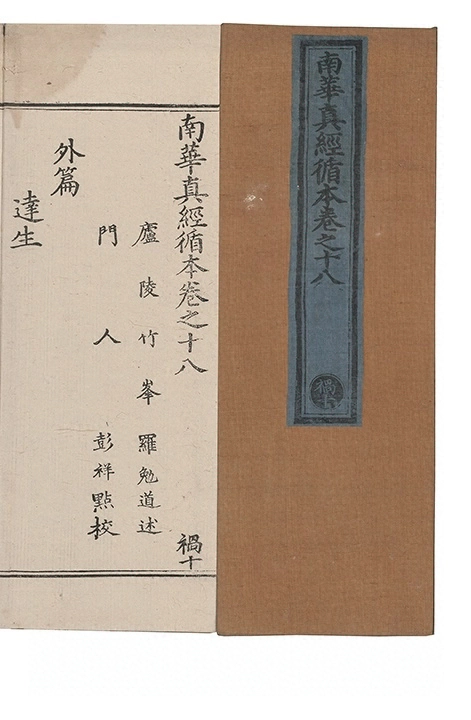 南華真經循本卷之十八
禍十
南華真經循本卷之十八
禍十
廬陵竹峯羅勉道述
門人彭祥點校
外篇
達生